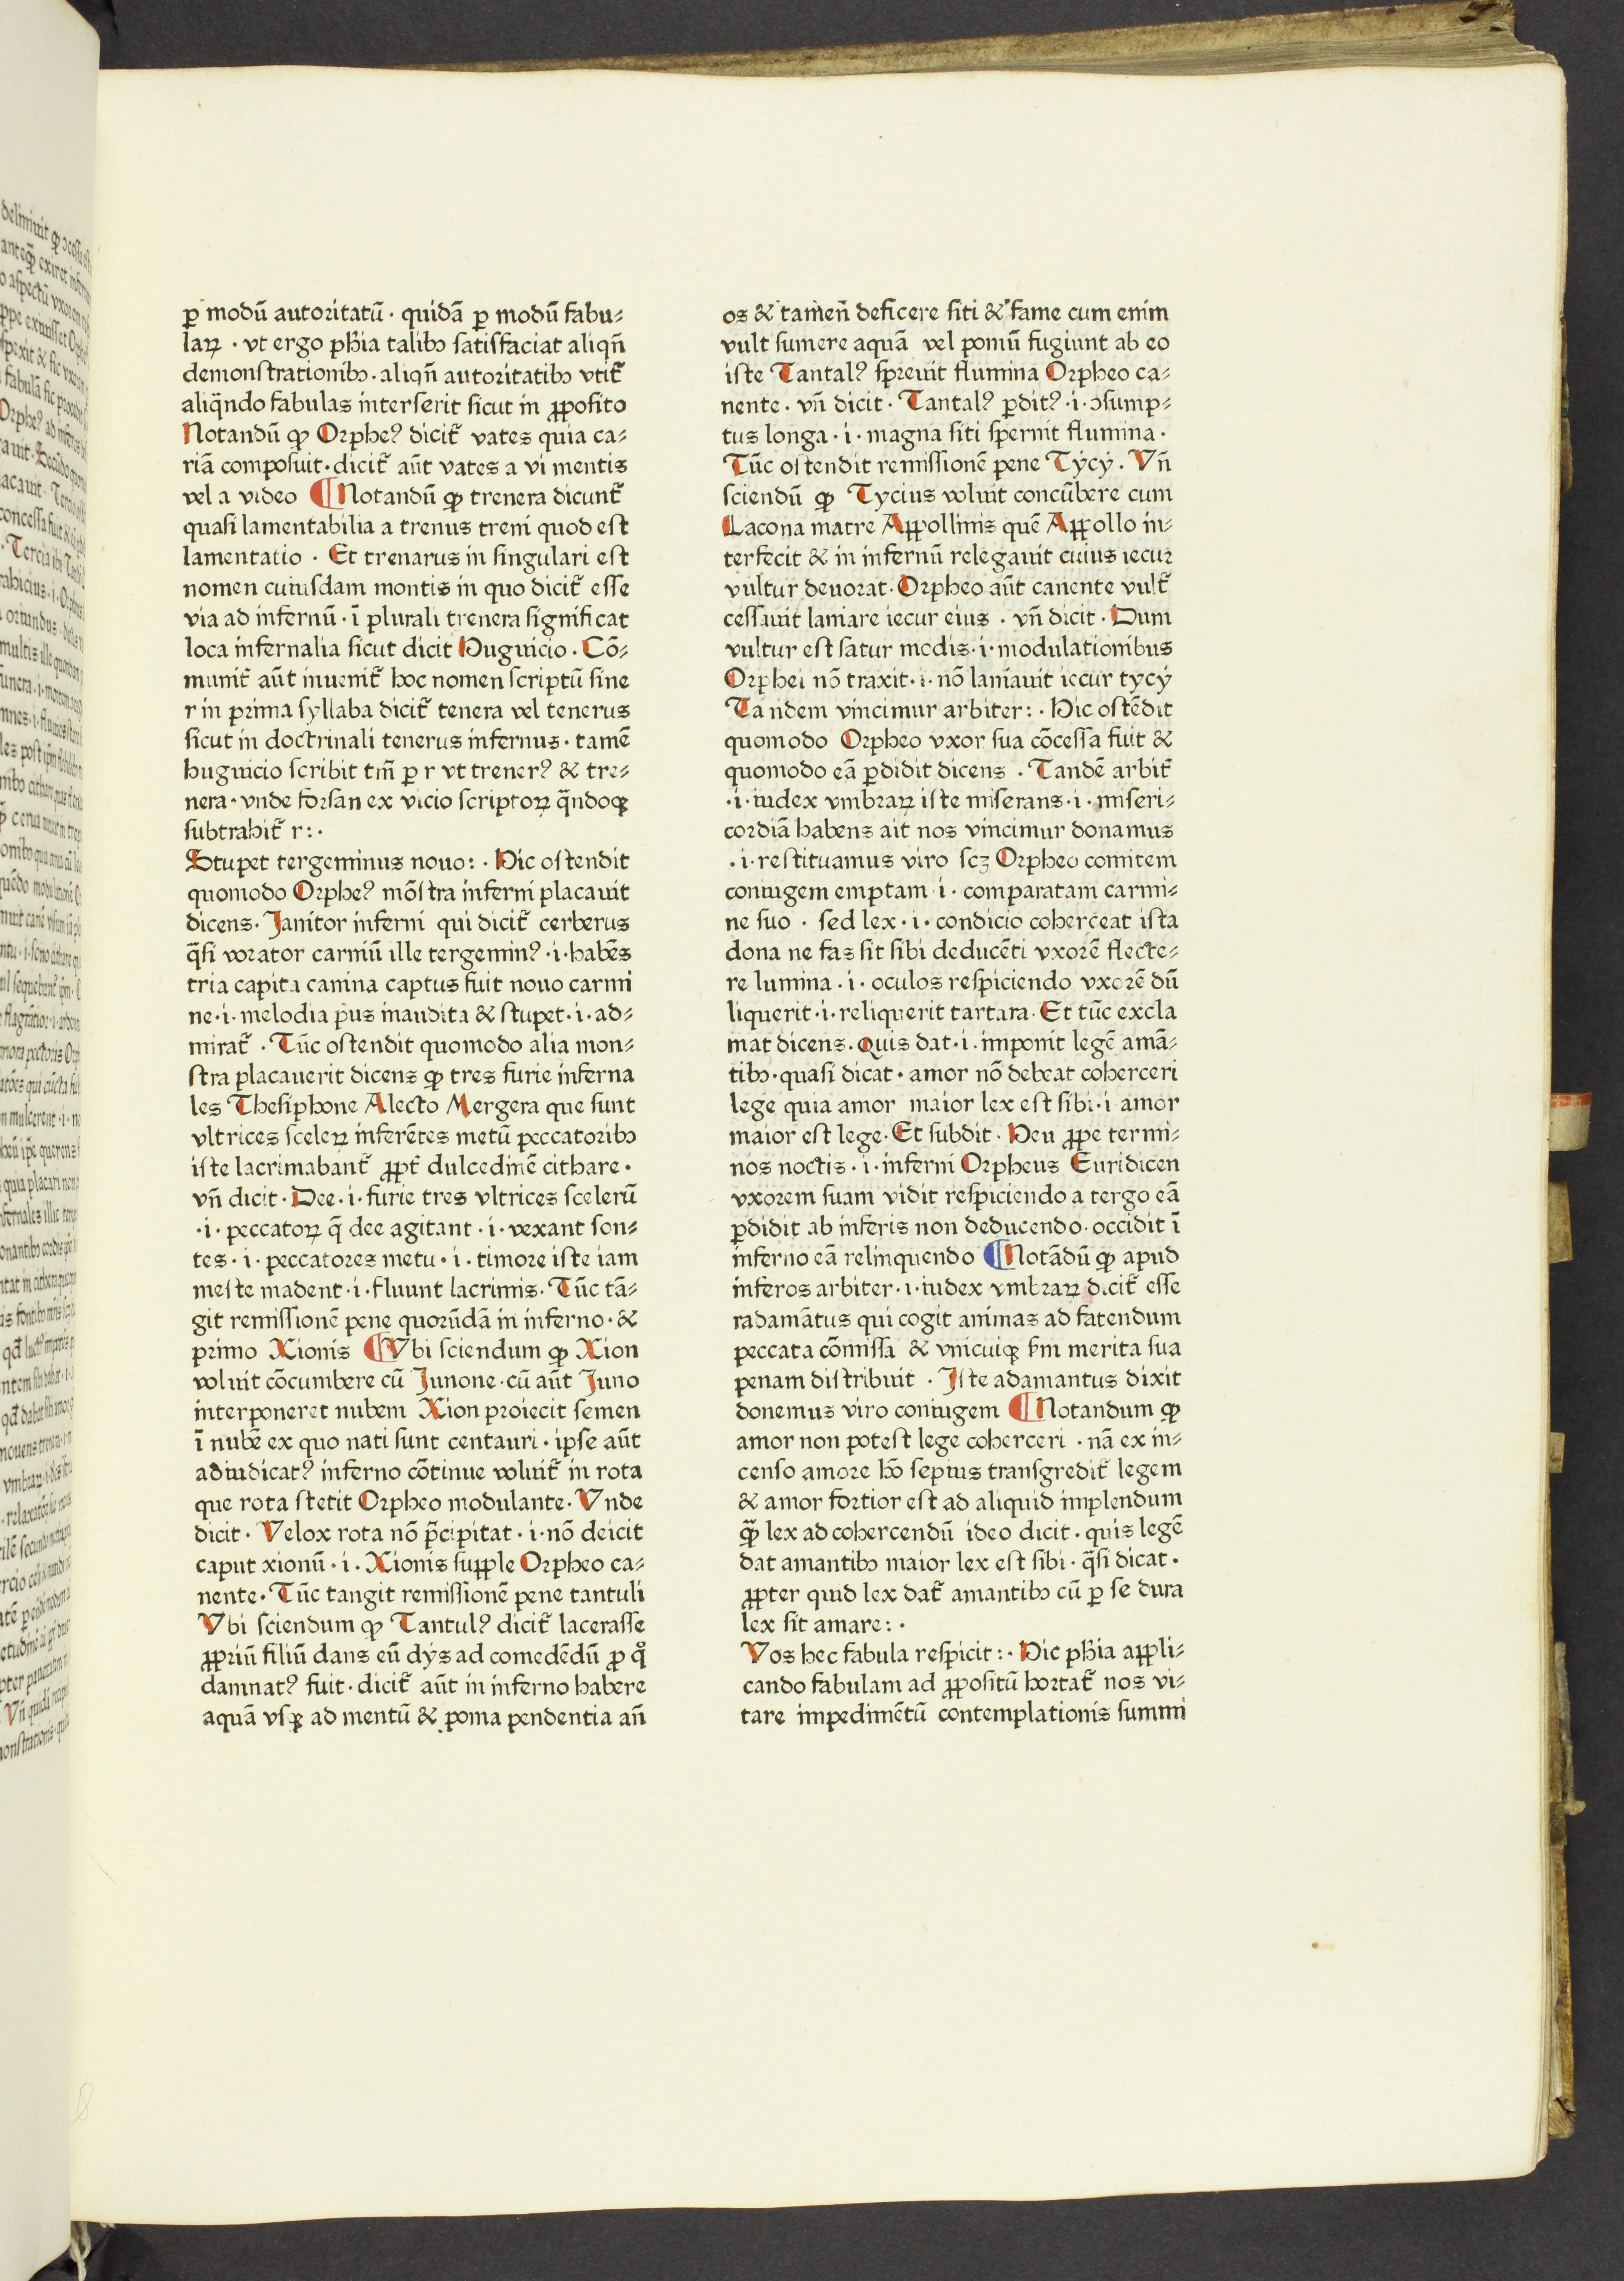 ꝑ modū autoritatū · quidā ꝑ modū fabu⸗
laꝝ · vt ergo pħia talibꝫ satisfaciat aliqñ
demonstrationibꝫ · aliqñ autoritatibꝫ vtit̃
aliq̄ndo fabulas interserit sicut in ꝓposito
Notandū ꝙ Orpheꝰ dicit̃ vates quia ca⸗
riā composuit · dicit̃ aūt vates a vi mentis
vel a video ¶ Notandū ꝙ trenera dicunt̃
quasi lamentabilia a trenus treni quod est
lamentatio · Et trenarus in singulari est
nomen cuiusdam montis in quo dicit̃ esse
via ad infernū · ī plurali trenera significat
loca infernalia sicut dicit Huguicio · Cō⸗
munit̃ aūt inuenit̃ hoc nomen scriptū sine
r in prima syllaba dicit̃ tenera vel tenerus
sicut in doctrinali tenerus infernus · tamē
huguicio scribit tm̄ ꝑ r vt trenerꝰ & tre⸗
nera · vnde forsan ex vicio scriptoꝝ q̄ndoqꝫ
subtrahit̃ r : ·
Stupet tergeminus nouo : · Hic ostendit
quomodo Orpheꝰ mōstra inferni placauit
dicens · Janitor inferni qui dicit̃ cerberus
q̄si vorator carniū ille tergeminꝰ · i · habēs
tria capita canina captus fuit nouo carmi
ne · i · melodia p̄us inaudita & stupet · i · ad⸗
mirat̃ · Tūc ostendit quomodo alia mon⸗
stra placauerit dicens ꝙ tres furie inferna
les Thesiphone Alecto Mergera que sunt
vltrices sceleꝝ inferētes metū peccatoribꝫ
iste lacrimabant̃ ꝓpt̃ dulcedinē cithare ·
vn̄ dicit · Dee · i · furie tres vltrices scelerū
· i · peccatoꝝ q̄ dee agitant · i · vexant son⸗
tes · i · peccatores metu · i · timore iste iam
meste madent · i · fluunt lacrimis · Tūc tā⸗
git remissionē pene quorūdā in inferno · &
primo Xionis ¶ Vbi sciendum ꝙ Xion
voluit cōcumbere cū Junone · cū aūt Juno
interponeret nubem Xion proiecit semen
ī nubē ex quo nati sunt centauri · ipse aūt
adiudicatꝰ inferno cōtinue voluit̃ in rota
que rota stetit Orpheo modulante · Vnde
dicit · Velox rota nō p̄cipitat · i · nō deicit
caput xionū · i · Xionis supple Orpheo ca⸗
nente · Tūc tangit remissionē pene tantuli
Vbi sciendum ꝙ Tantulꝰ dicit̃ lacerasse
ꝓpriū filiū dans eū dÿs ad comedēdū ꝓ qͦ
damnatꝰ fuit · dicit̃ aūt in inferno habere
aquā vsqꝫ ad mentū & poma pendentia añ
os & tamen̄ deficere siti & fame cum enim
vult sumere aquā vel pomū fugiunt ab eo
iste Tantalꝰ spreuit flumina Orpheo ca⸗
nente · vn̄ dicit · Tantalꝰ ꝑditꝰ · i · ↄsump⸗
tus longa · i · magna siti spernit flumina ·
Tūc ostendit remissionē pene Tÿcÿ · Vn̄
sciendū ꝙ Tycius voluit concūbere cum
Lacona matre Appollinis quē Appollo in⸗
terfecit & in infernū relegauit cuius iecur
vultur deuorat · Orpheo aūt canente vult̃
cessauit laniare iecur eius · vn̄ dicit · Dum
vultur est satur modis · i · modulationibus
Orphei nō traxit · i · nō laniauit iecur tycÿ
Tandem vincimur arbiter : · Hic ostēdit
quomodo Orpheo vxor sua cōcessa fuit &
quomodo eā ꝑdidit dicens · Tandē arbit̃
· i · iudex vmbraꝝ iste miserans · i · miseri⸗
cordiā habens ait nos vincimur donamus
· i · restituamus viro scꝫ Orpheo comitem
coniugem emptam i · comparatam carmi⸗
ne suo · sed lex · i · condicio coherceat ista
dona ne fas sit sibi deducēti vxorē flecte⸗
re lumina · i · oculos respiciendo vxorē dū
liquerit · i · reliquerit tartara · Et tūc excla
mat dicens · Quis dat · i · imponit legē amā⸗
tibꝫ · quasi dicat · amor nō debeat coherceri
lege quia amor maior lex est sibi · i amor
maior est lege · Et subdit · Heu ꝓpe termi⸗
nos noctis · i · inferni Orpheus Euridicen
vxorem suam vidit respiciendo a tergo eā
ꝑdidit ab inferis non deducendo · occidit ī
inferno eā relinquendo ¶ Notādū ꝙ apud
inferos arbiter · i · iudex vmbraꝝ dicit̃ esse
radamātus qui cogit animas ad fatendum
peccata cōmissa & vnicuiqꝫ s̄m merita sua
penam distribuit · Iste adamantus dixit
donemus viro coniugem ¶ Notandum ꝙ
amor non potest lege coherceri · nā ex in⸗
censo amore hō septus transgredit̃ legem
& amor fortior est ad aliquid implendum
ꝙ̄ lex ad cohercendū ideo dicit · quis legē
dat amantibꝫ maior lex est sibi · q̄si dicat ·
ꝓpter quid lex dat̃ amantibꝫ cū ꝑ se dura
lex sit amare : ·
Vos hec fabula respicit : · Hic pħia appli⸗
cando fabulam ad ꝓpositū hortat̃ nos vi⸗
tare impedimētū contemplationis summi